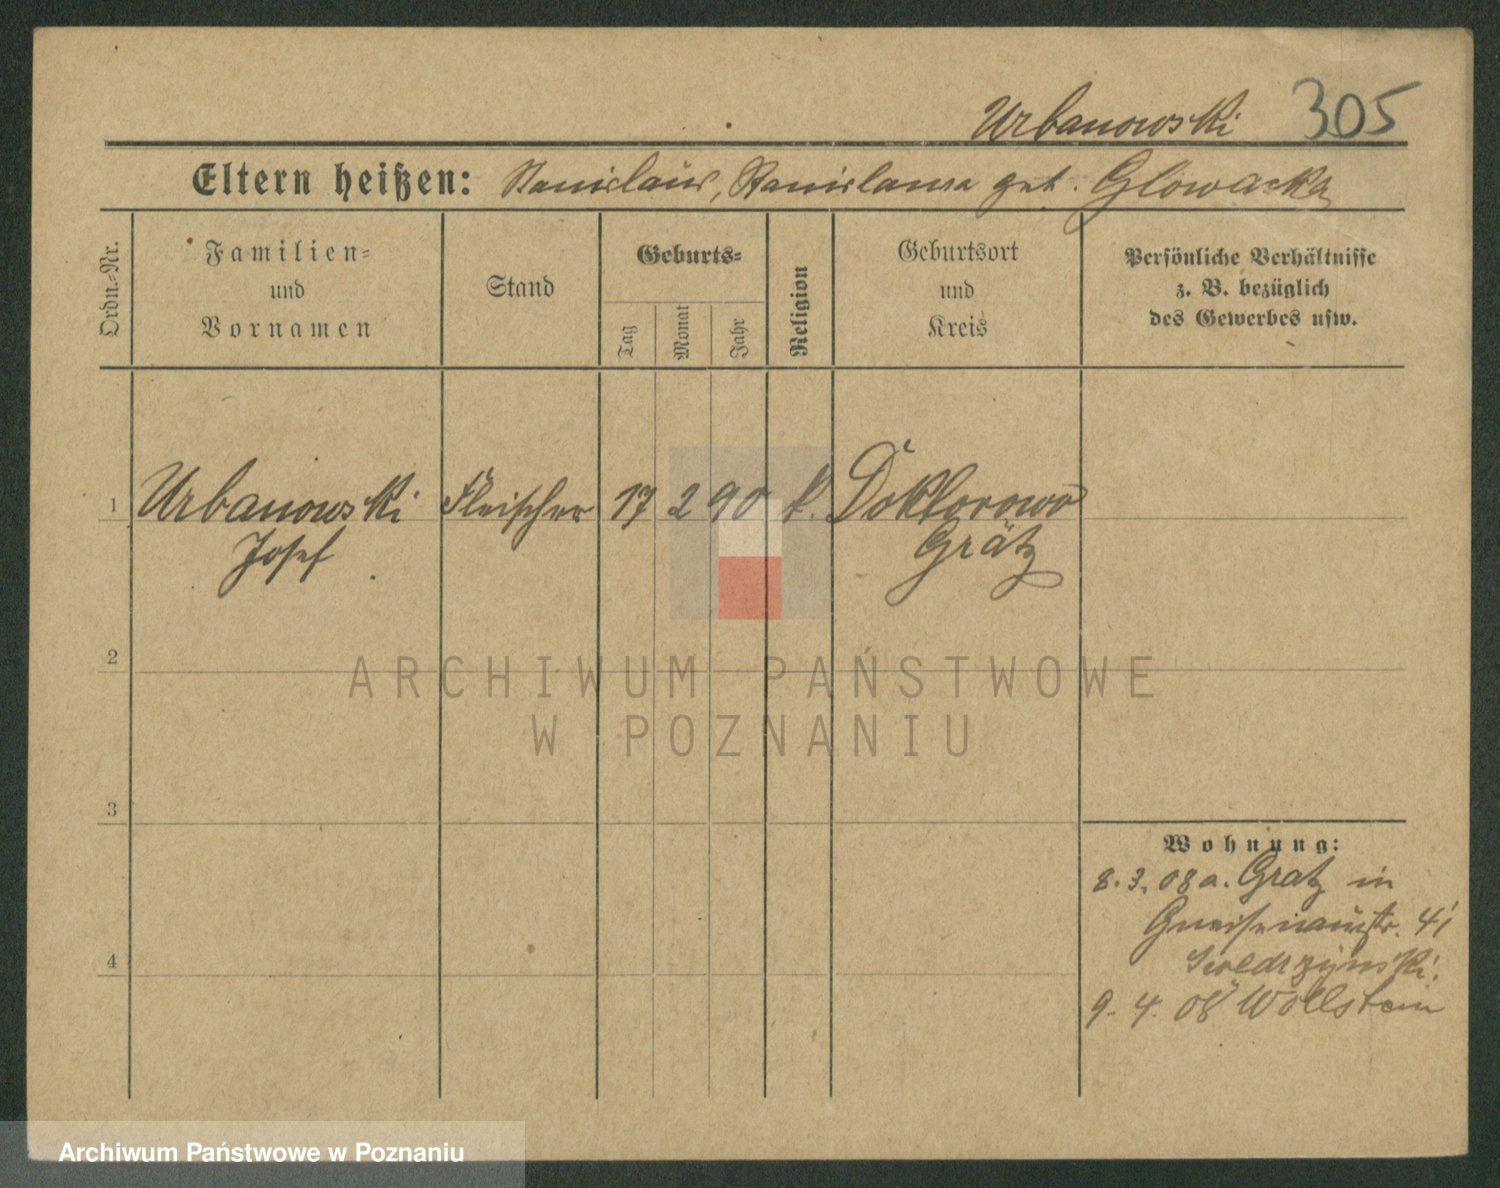 Urbanowski 305
Eltern heißen: Stanislaus, Stanislawa geb. Glowacka
Ordn.-Nr.
Familien-
und
Vornamen
Stand
Geburts-
Tag
Monat
Jahr
Religion
Geburtsort
und
Kreis
Persönliche Verhältnisse
z. B. bezüglich
des Gewerbes usw.
1 Urbanowski Fleischer 17 2 90 k. Doktorowo
Josef Grätz
2
ARCHIWUM PAŃSTWOWE
W POZNANIU
3
Wohnung:
8.3.08 a. Gratz in
Gneisenaustr. 41
4
9.4.08 Wollstein
Archiwum Państwowe w Poznaniu